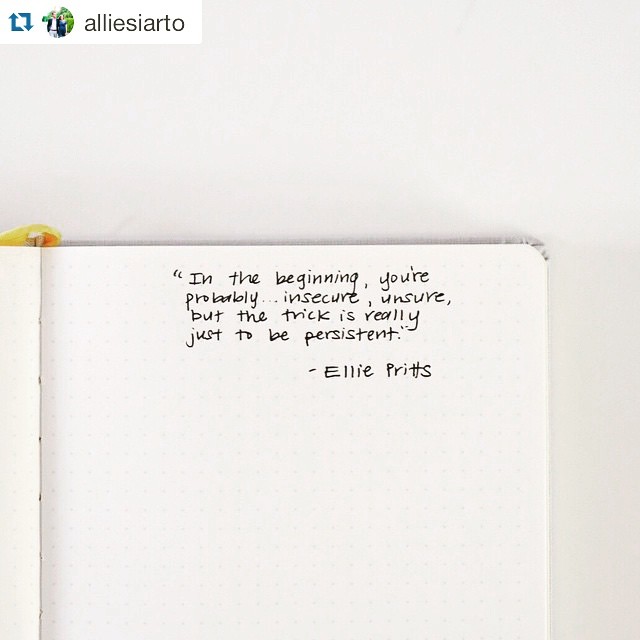 alliesiarto
“In the beginning, you're
probably...insecure, unsure,
but the trick is really
just to be persistent.”
- Ellie Pritts